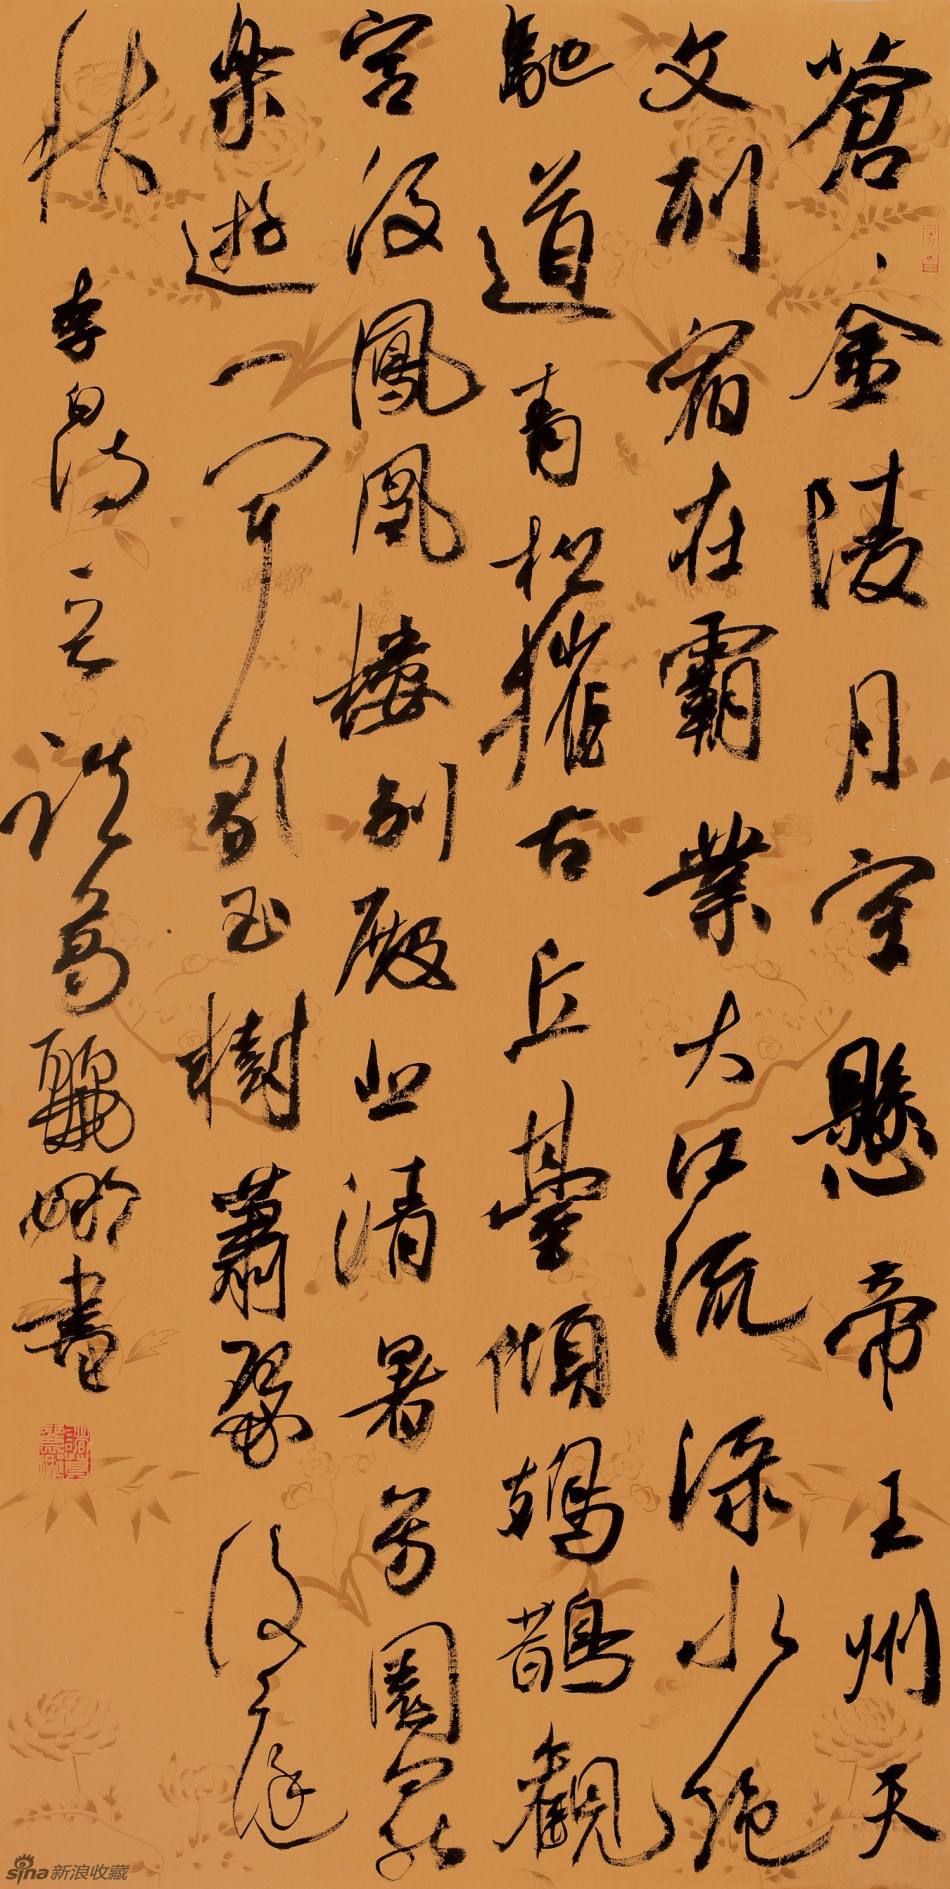 蒼〻金陵月空懸帝王州天
文列宿在霸業大江流淥水絶
馳道青松摧古丘臺傾鳷鵲觀
宮沒鳳凰樓別殿悲清暑芳園罷
樂遊一聞歌玉樹蕭瑟後庭
秋 李白詩 諸葛麗娜書
sina 新浪收藏